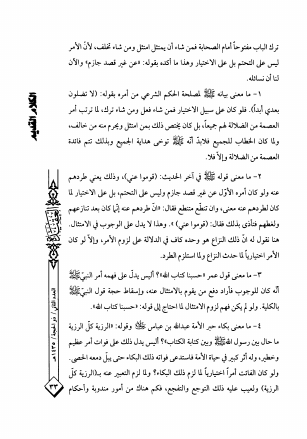 ترك الباب مفتوحاً أمام الصحابة فمن شاء أن يمتثل امتثل ومن شاء تخلف، لأنّ الأمر
ليس على التحتم بل على الاختيار وهذا ما أكده بقوله: «عن غير قصد جازم» والآن
لنا أن نسائله.
١- ما معنى بيانه ﷺ لمصلحة الحكم الشرعي من أمره بقوله: (لا تضلون
بعدي أبداً). فلو كان على سبيل الاختيار فمن شاء فعل ومن شاء ترك، لما ترتب أمر
العصمة من الضلالة لهم جميعاً، بل كان يختص ذلك بمن امتثل ويحرم منه من خالف،
ولما كان الخطاب للجميع فلابدّ أنّه ﷺ توخى هداية الجميع وبذلك تتم فائدة
العصمة من الضلالة وإلّا فلا.
٢- ما معنى قوله ﷺ في آخر الحديث: (قوموا عني)، وذلك يعني طردهم
عنه ولو كان أمره الأوّل عن غير قصد جازم وليس على التحتم، بل على الاختيار لما
كان لطردهم عنه معنى، وان تنطّع متنطع فقال: «انّ طردهم عنه إنّما كان بعد تنازعهم
ولغطهم فتأذى بذلك فقال: (قوموا عني)». وهذا لا يدل على الوجوب في الامتثال.
هنا نقول له انّ ذلك النزاع هو وحده كاف في الدلالة على لزوم الأمر، وإلّا لو كان
الأمر اختيارياً لما حدث النزاع ولما استلزم الطرد.
٣- ما معنى قول عمر «حسبنا كتاب الله»؟ أليس يدل على فهمه أمر النبيّ ﷺ
أنّه كان للوجوب فأراد دفع من يقوم بالامتثال عنه، وإسقاط حجة قول النبيّ ﷺ
بالكلية. ولو لم يكن فهم لزوم الامتثال لما احتاج إلى قوله: «حسبنا كتاب الله».
٤- ما معنى بكاء حبر الأمة عبدالله بن عباس وقوله: «الرزية كلّ الرزية
ما حال بين رسول الله ﷺ وبين كتابة الكتاب»؟ أليس يدل ذلك على فوات أمر عظيم
وخطير، وله أثر كبير في حياة الأمة فاستدعى فواته ذلك البكاء حتى يبل دمعه الحصى.
ولو كان الفائت أمراً اختيارياً لما لزم ذلك البكاء؟ ولما لزم التعبير عنه بـ(الرزية كلّ
الرزية) ولعيب عليه ذلك التوجع والتفجع، فكم هناك من أمور مندوبة وأحكام
العدد الثاني / ذو الحجة / ١٤٣٥هـ
٣٣